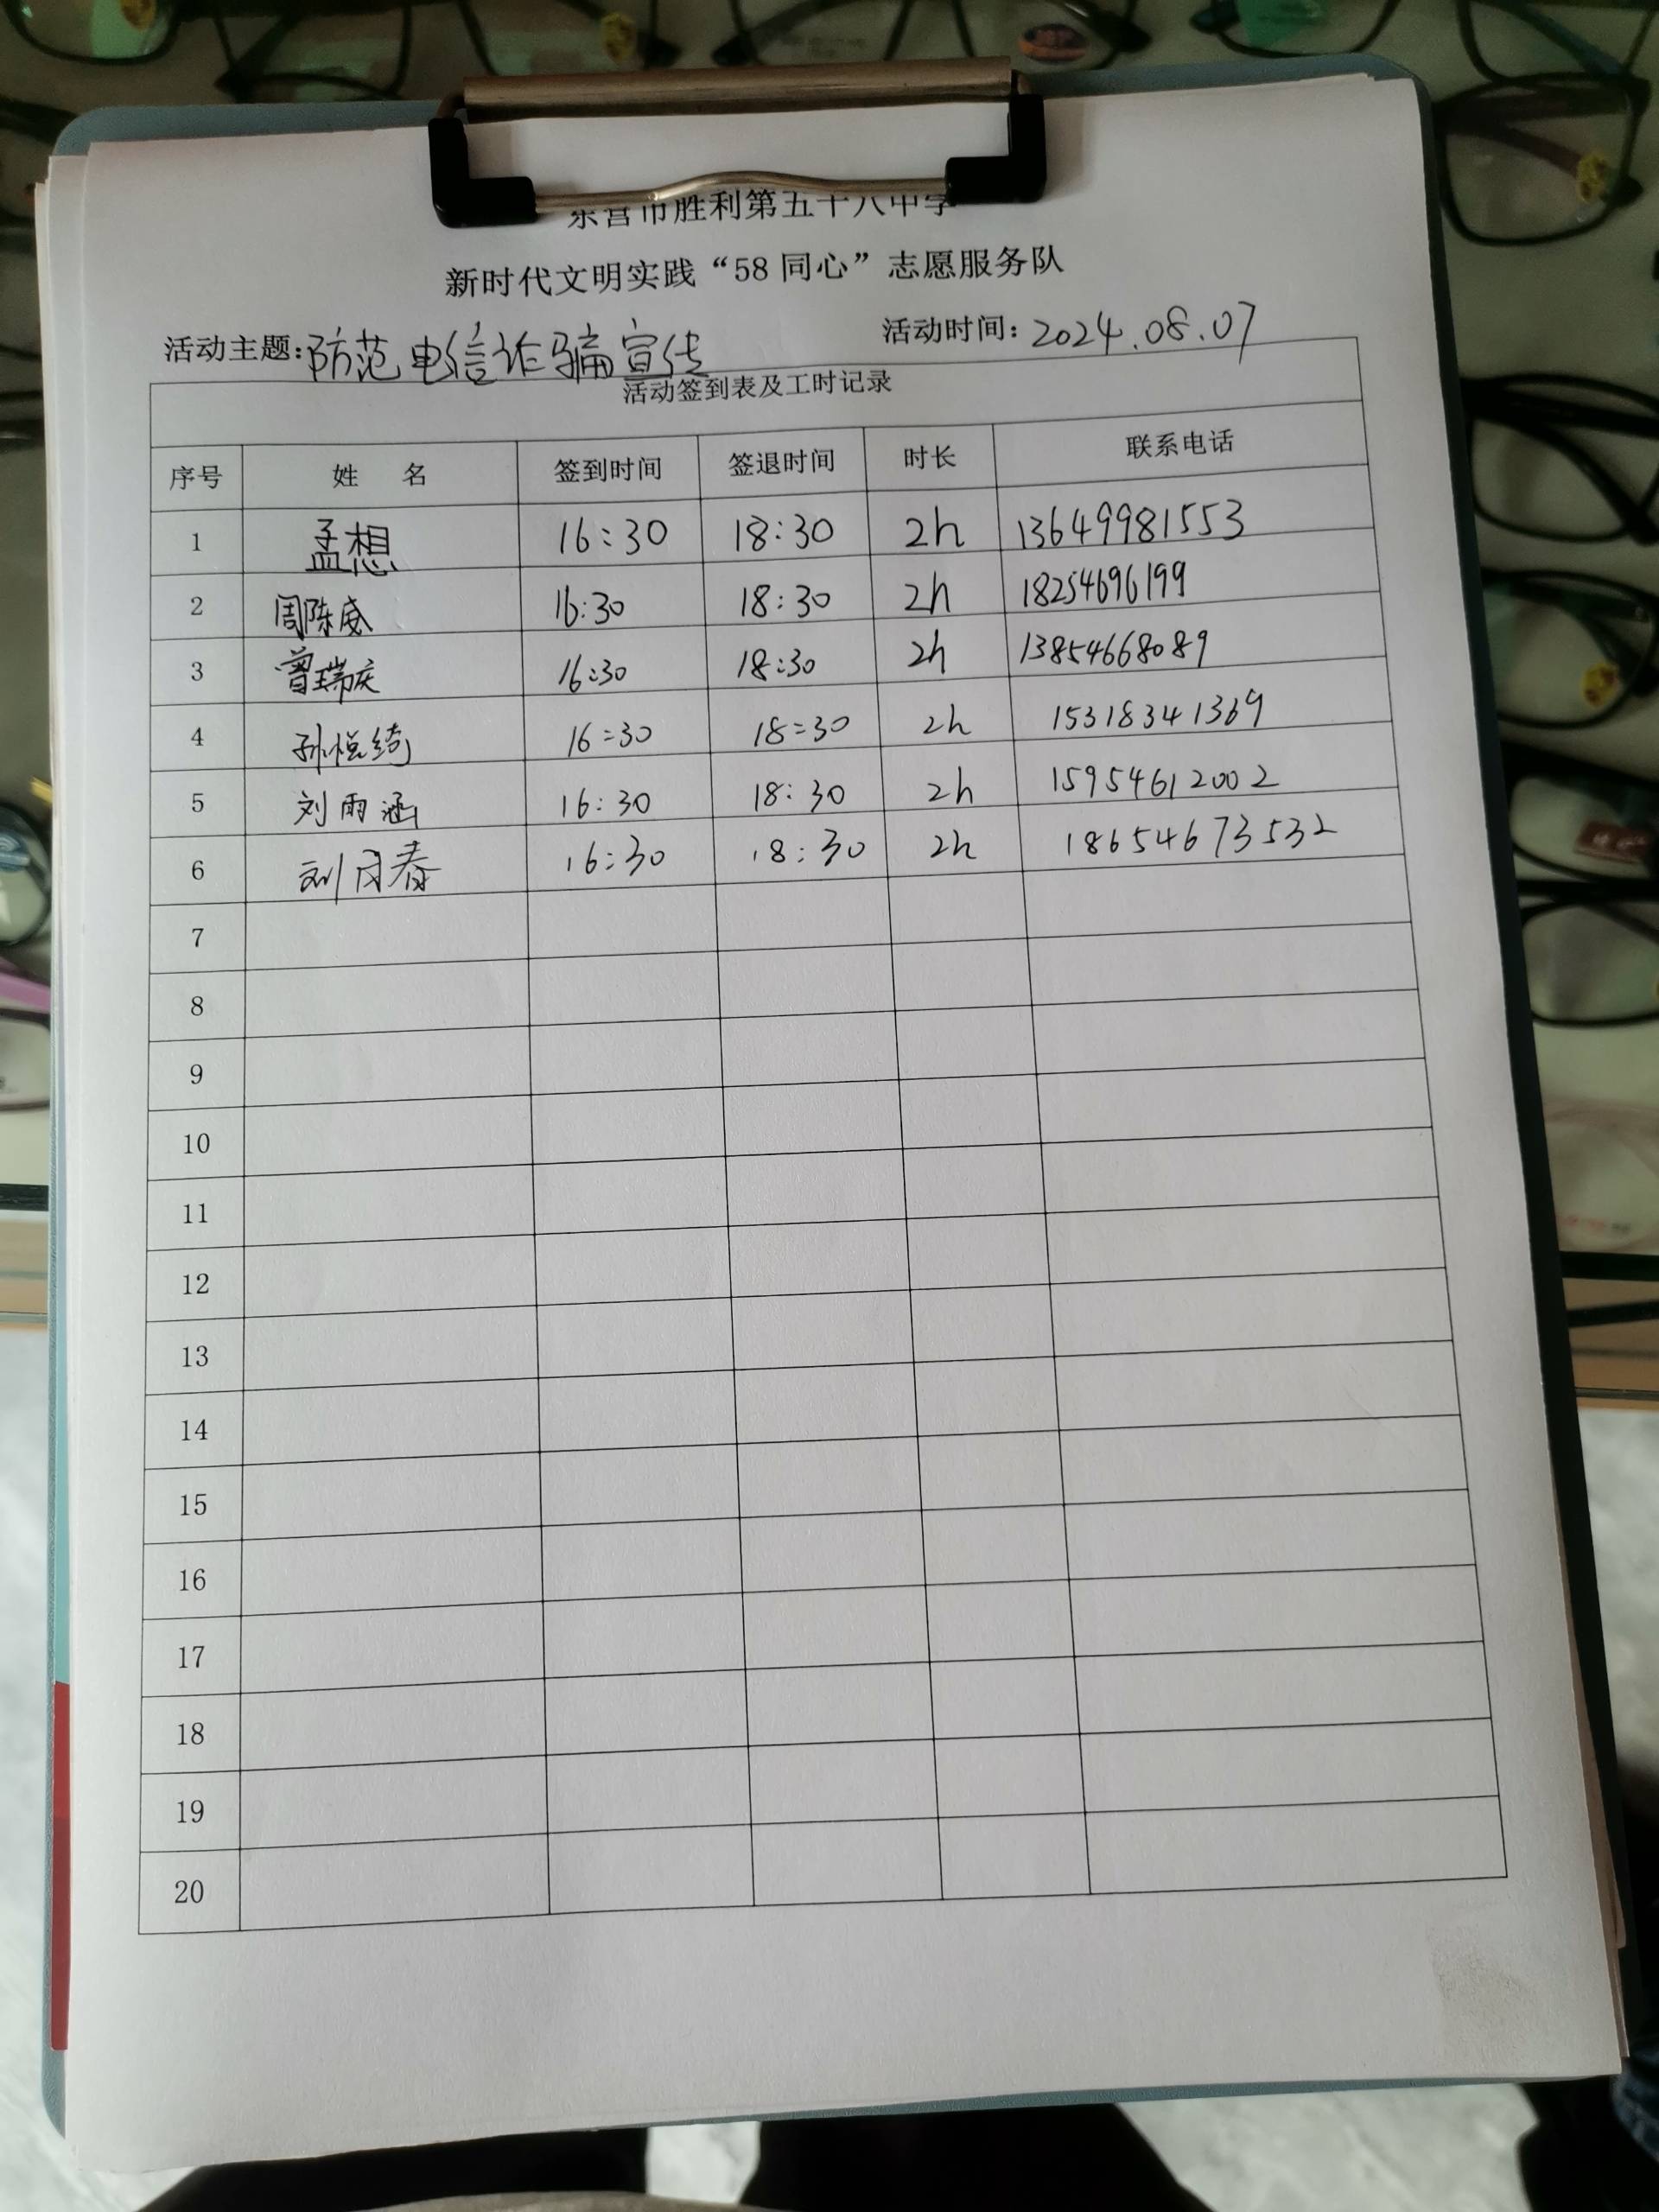 东营市胜利第五十八中学
新时代文明实践“58同心”志愿服务队
活动主题:防范电信诈骗宣传 活动时间:2024.08.07
活动签到表及工时记录
序号 姓 名 签到时间 签退时间 时长 联系电话
1 孟想 16:30 18:30 2h 13649981553
2 周陈威 16:30 18:30 2h 18254696199
3 曾瑞庆 16:30 18:30 2h 13854668089
4 孙悦绮 16:30 18:30 2h 15318341369
5 刘雨涵 16:30 18:30 2h 15954612002
6 刘月春 16:30 18:30 2h 18654673532
7
8
9
10
11
12
13
14
15
16
17
18
19
20